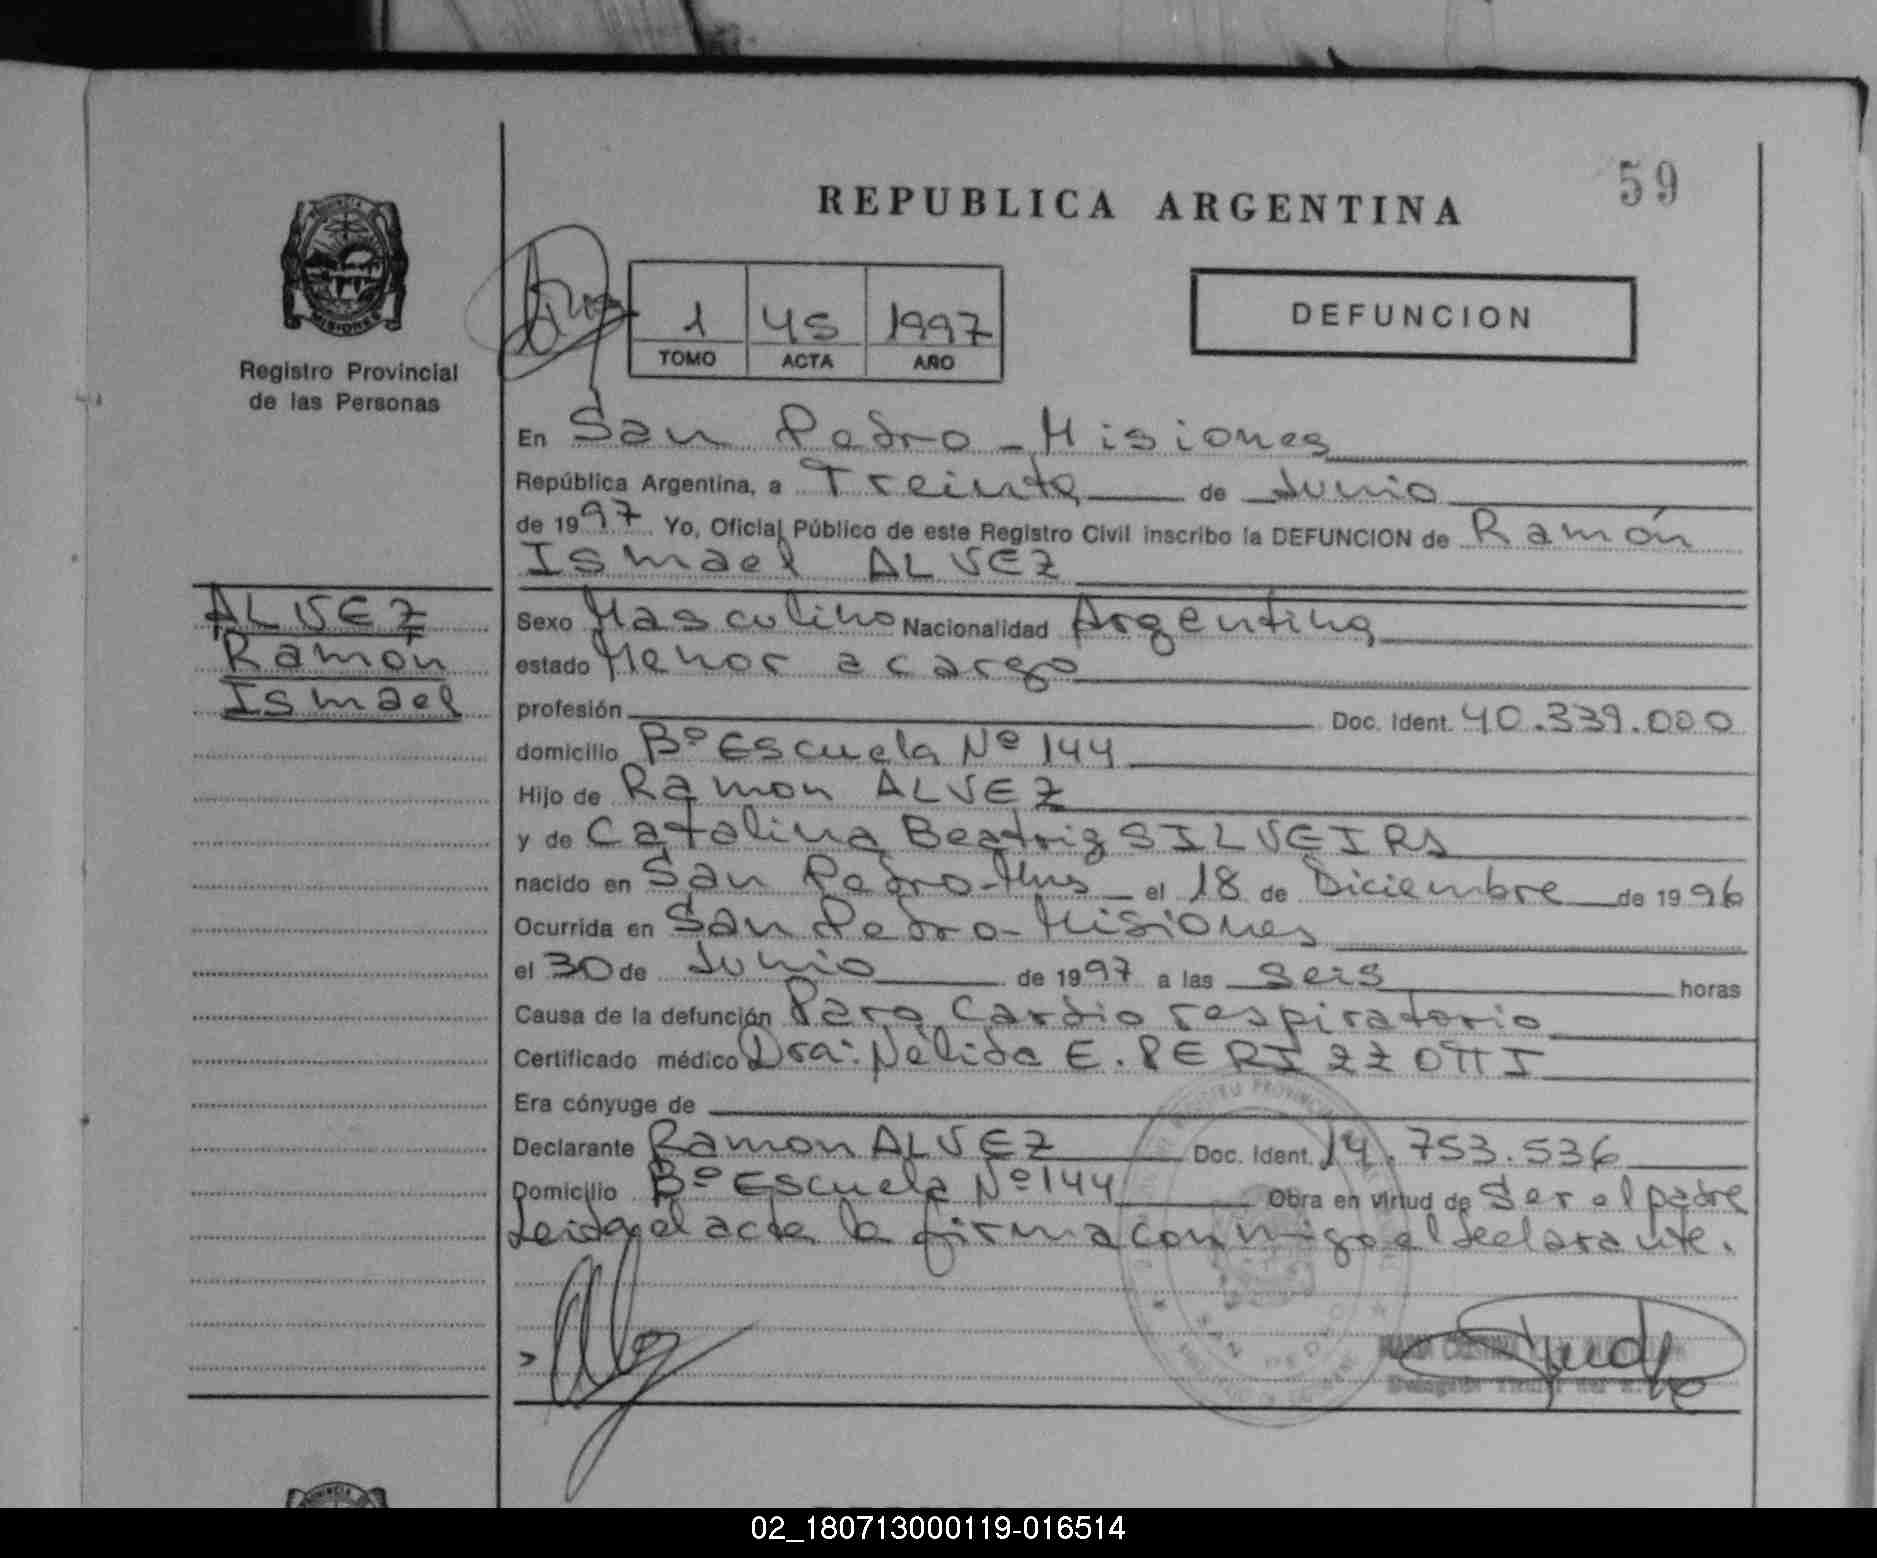 59
REPUBLICA ARGENTINA
PROVINCIA DE
MISIONES
Registro Provincial
de las Personas
1 45 1997
TOMO ACTA AÑO
DEFUNCION
En San Pedro - Misiones
República Argentina, a Treinta de Junio
de 1997 Yo, Oficial Público de este Registro Civil inscribo la DEFUNCION de Ramón
Ismael ALVEZ
ALVEZ
Ramón
Ismael
Sexo Masculino Nacionalidad Argentina
estado Menor a cargo
profesión Doc. Ident. 40.339.000
domicilio Bº Escuela Nº 144
Hijo de Ramon ALVEZ
y de Catalina Beatriz SILVEIRA
nacido en San Pedro-Mnes el 18 de Diciembre de 1996
Ocurrida en San Pedro - Misiones
el 30 de Junio de 1997 a las seis horas
Causa de la defunción Paro Cardio respiratorio
Certificado médico Dra: Nélida E. PERIZZOTTI
Era cónyuge de
Declarante Ramon ALVEZ Doc. Ident. 14.753.536
Domicilio Bº Escuela Nº 144 Obra en virtud de Ser el padre
Leida el acta la firma conmigo el declarante.
SAN PEDRO
02_180713000119-016514